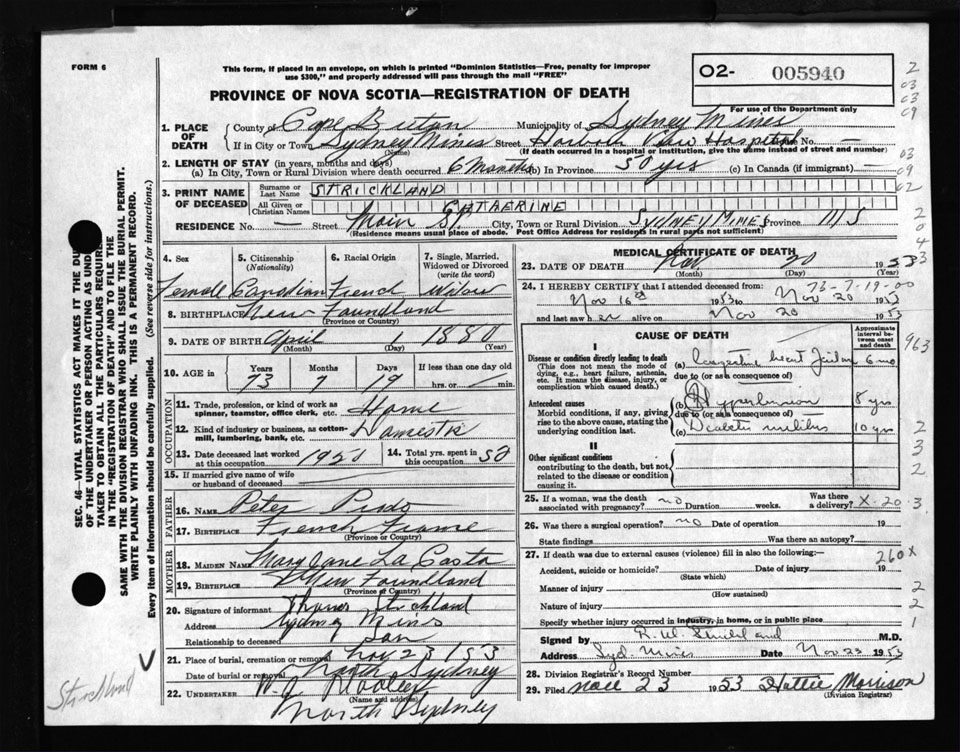 FORM 6
This form, if placed in an envelope, on which is printed "Dominion Statistics—Free, penalty for improper
use $300," and properly addressed will pass through the mail "FREE"
PROVINCE OF NOVA SCOTIA—REGISTRATION OF DEATH
02- 005940
For use of the Department only
1. PLACE OF DEATH
County of Cape Breton Municipality of Sydney Mines
If in City or Town Sydney Mines Street Harbor View Hospital No. —
(Name) (If death occurred in a hospital or institution, give the name instead of street and number)
2. LENGTH OF STAY (in years, months and days)
(a) In City, Town or Rural Division where death occurred 6 Months (b) In Province 50 yrs (c) In Canada (if immigrant) —
3. PRINT NAME OF DECEASED
Surname or Last Name STRICKLAND
All Given or Christian Names CATHERINE
RESIDENCE No. — Street Main St. City, Town or Rural Division SYDNEY MINES Province N S
(Residence means usual place of abode. Post Office Address for residents in rural parts not sufficient)
4. Sex
5. Citizenship (Nationality)
6. Racial Origin
7. Single, Married, Widowed or Divorced (write the word)
Female Canadian French Widow
8. BIRTHPLACE New Foundland
(Province or Country)
9. DATE OF BIRTH April 1 1880
(Month) (Day) (Year)
10. AGE in Years Months Days If less than one day
73 7 19 hrs. or min.
OCCUPATION
11. Trade, profession, or kind of work as spinner, teamster, office clerk, etc. Home
12. Kind of industry or business, as cotton-mill, lumbering, bank, etc. Domestic
13. Date deceased last worked at this occupation 1950
14. Total yrs. spent in this occupation 50
15. If married give name of wife or husband of deceased
FATHER
16. Name Peter
17. Birthplace French France
(Province or Country)
MOTHER
18. MAIDEN NAME Mary Jane La Casta
19. BIRTHPLACE New Foundland
(Province or Country)
20. Signature of informant Thomas Strickland
Address Sydney Mines
Relationship to deceased Son
21. Place of burial, cremation or removal Nov 23 1953
Date of burial or removal North Sydney
22. UNDERTAKER W.J. Dooley
(Name and address)
North Sydney
MEDICAL CERTIFICATE OF DEATH
23. DATE OF DEATH Nov 20 1953
(Month) (Day) (Year)
73-7-19-00
24. I HEREBY CERTIFY that I attended deceased from:
Nov 16th 1953 to Nov 20 1953
and last saw her alive on Nov 20 1953
CAUSE OF DEATH
Approximate interval between onset and death
I
Disease or condition directly leading to death (This does not mean the mode of dying, e.g., heart failure, asthenia, etc. It means the disease, injury, or complication which caused death.)
(a) Congestive heart failure 6 mo
due to (or as a consequence of)
Antecedent causes
Morbid conditions, if any, giving rise to the above cause, stating the underlying condition last.
(b) Hypertension 8 yrs
due to (or as a consequence of)
(c) Diabetes mellitus 10 yrs
II
Other significant conditions contributing to the death, but not related to the disease or condition causing it.
25. If a woman, was the death associated with pregnancy? no Duration weeks. Was there a delivery? X-20-3
26. Was there a surgical operation? no Date of operation 19
State findings Was there an autopsy?
27. If death was due to external causes (violence) fill in also the following:—
260X
Accident, suicide or homicide? Date of injury 19
(State which)
Manner of injury
(How sustained)
Nature of injury
Specify whether injury occurred in industry, in home, or in public place
Signed by R. W. M.D.
Address Syd. Mines Date Nov 23 1953
28. Division Registrar's Record Number
29. Filed Nov 23 1953 Hattie Morrison
(Division Registrar)
SEC. 46—VITAL STATISTICS ACT MAKES IT THE DUTY
OF THE UNDERTAKER OR PERSON ACTING AS UNDER-
TAKER TO OBTAIN ALL THE PARTICULARS REQUIRED
IN THE "REGISTRATION OF DEATH" AND TO FILE THE
SAME WITH THE DIVISION REGISTRAR WHO SHALL ISSUE THE BURIAL PERMIT.
WRITE PLAINLY WITH UNFADING INK. THIS IS A PERMANENT RECORD.
Every item of information should be carefully supplied. (See reverse side for instructions.)
Strickland
2
03
03
09
03
09
02
2
0
4
3
963
2
3
2
2
2
1